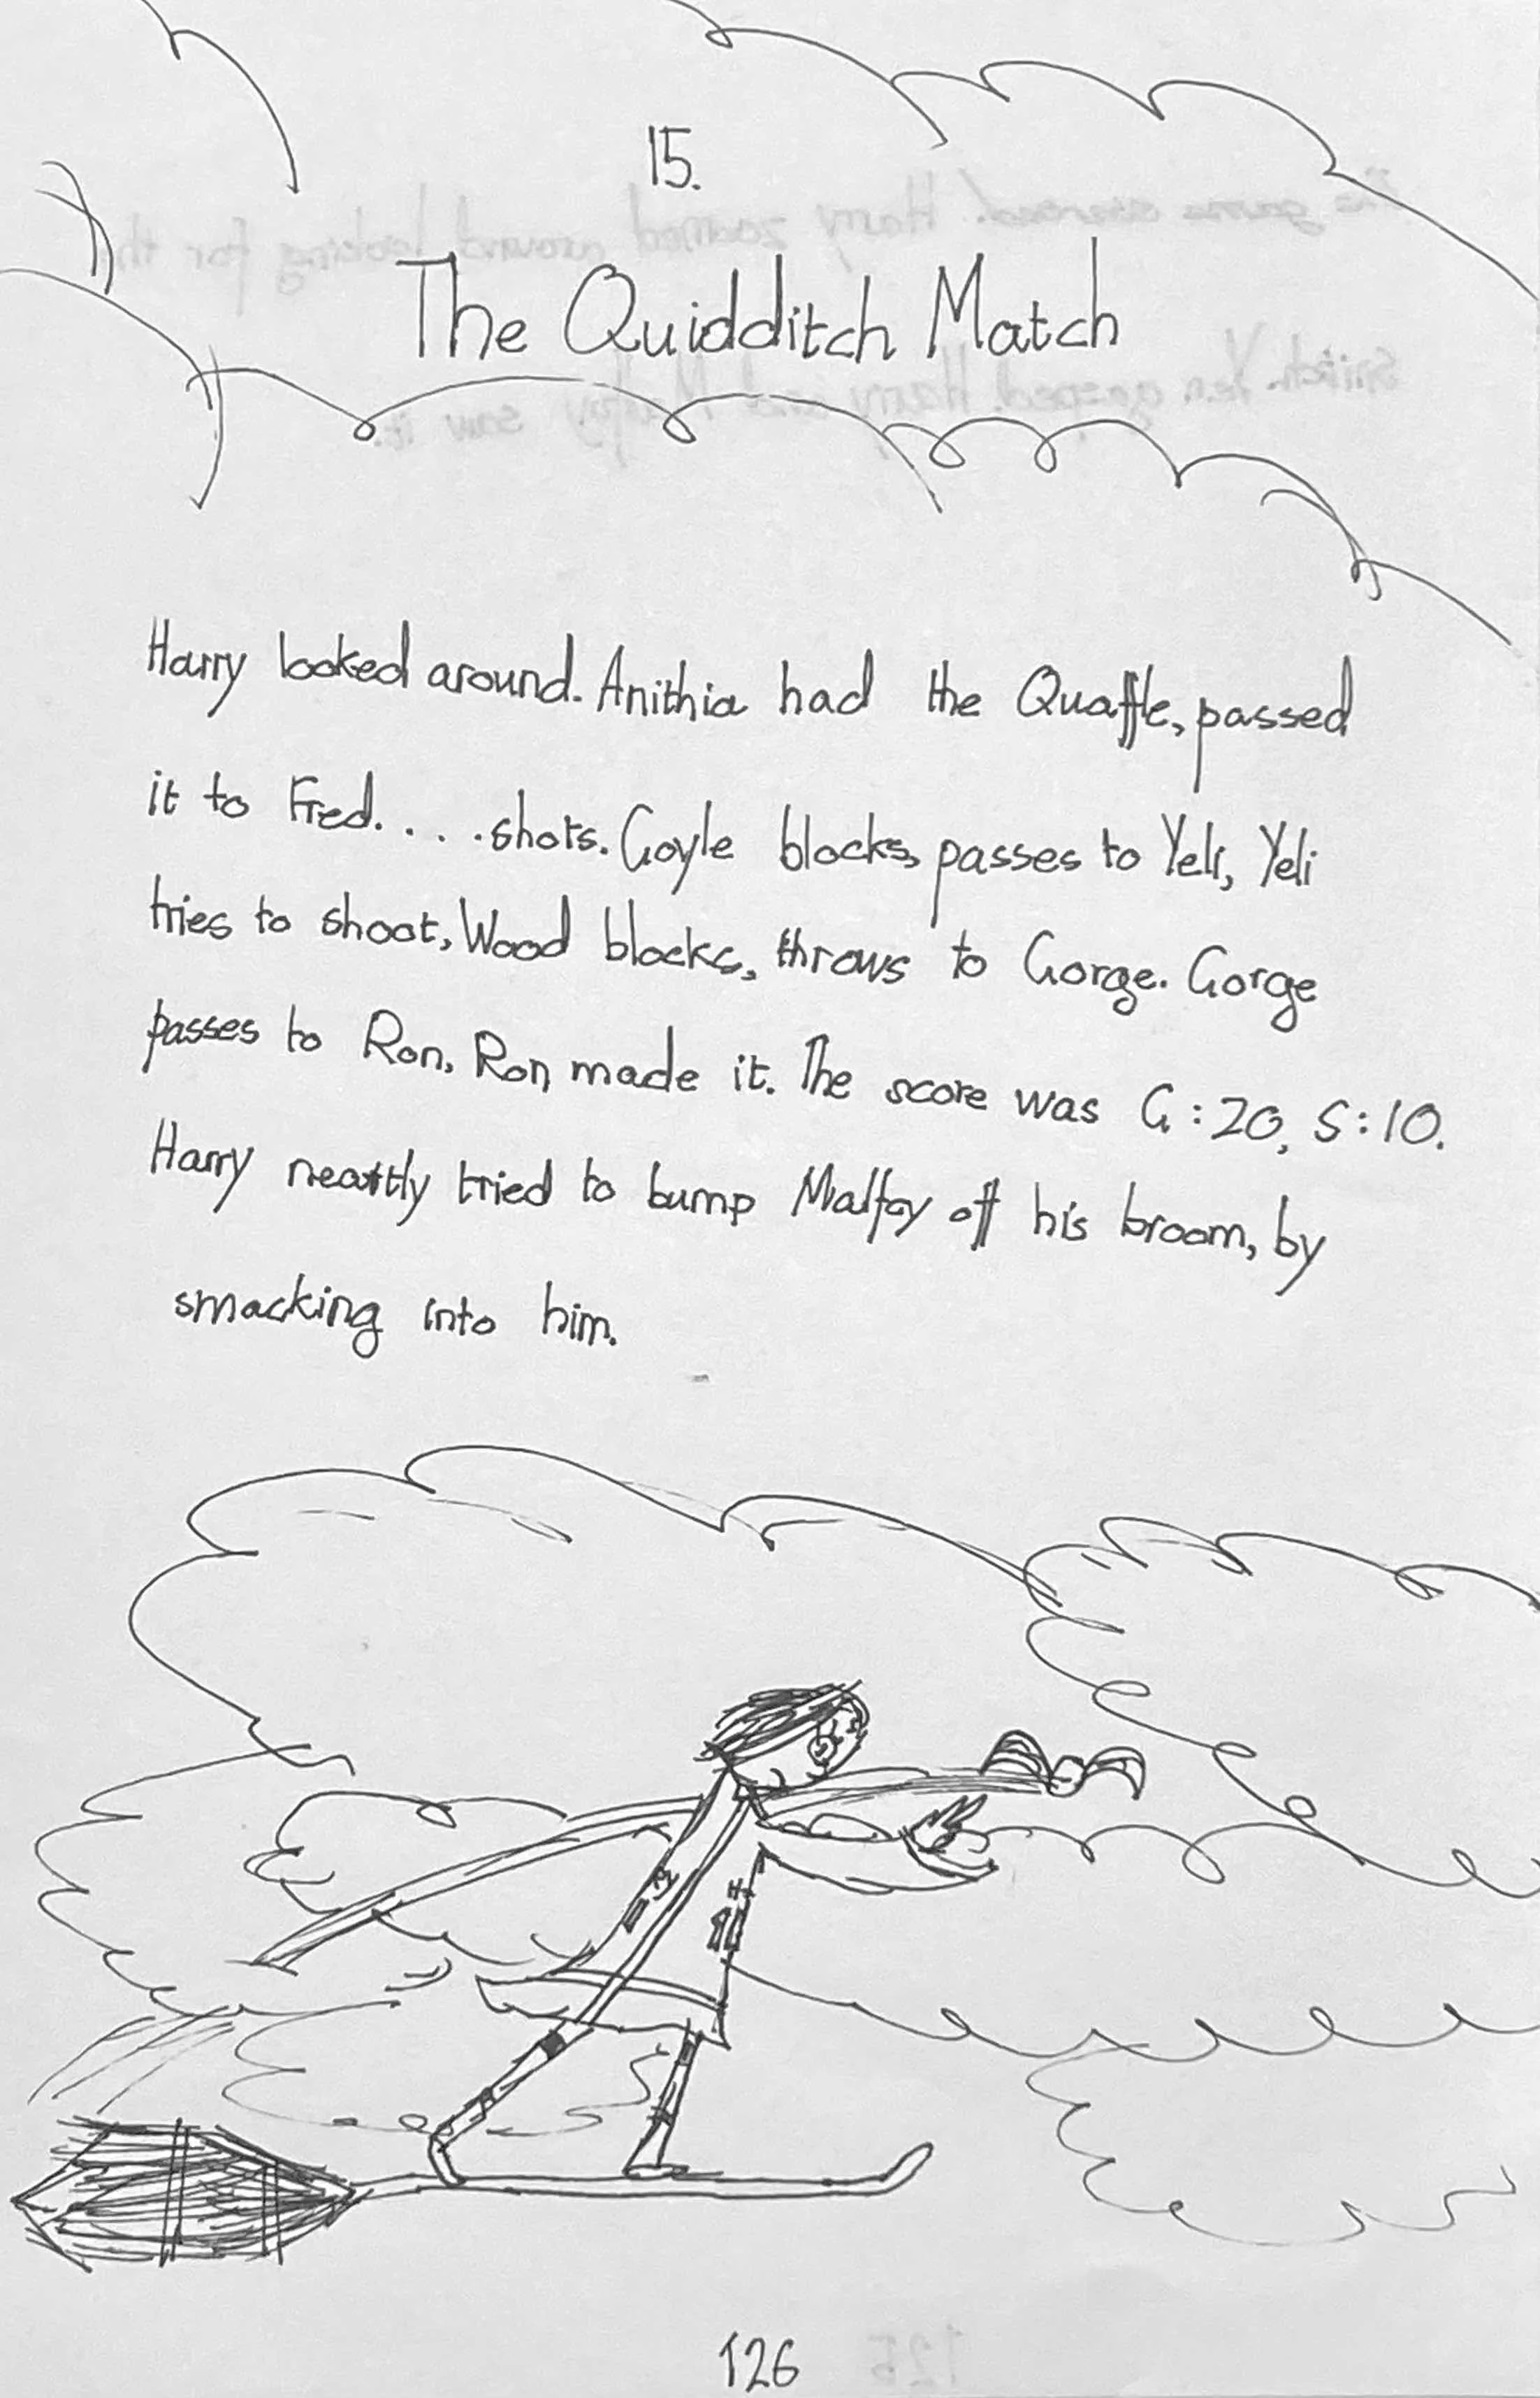 15.
The Quidditch Match
Harry looked around. Anithia had the Quaffle, passed
it to Fred. . . . .shots. Goyle blocks, passes to Yeli, Yeli
tries to shoot, Wood blocks, throws to Gorge. Gorge
passes to Ron. Ron made it. The score was G:20, S:10.
Harry tried to bump Malfoy off his broom, by
smacking into him.
126